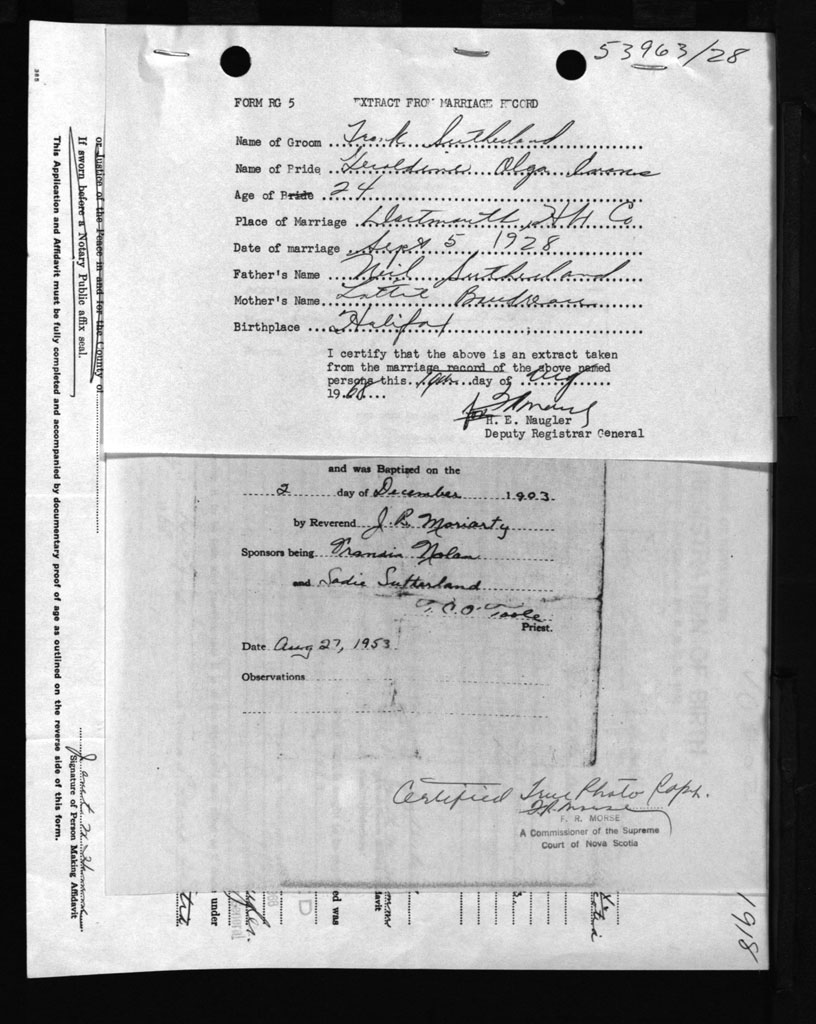 53963/28
FORM RG 5 EXTRACT FROM MARRIAGE RECORD
Name of Groom Frank Sutherland
Name of Bride Geraldine Olga
Age of Bride 24
Place of Marriage Dartmouth, Hfx Co
Date of marriage Sept 5 1928
Father's Name Neil Sutherland
Mother's Name Lottie Boudreau
Birthplace Halifax
I certify that the above is an extract taken
from the marriage record of the above named
persons this day of Aug
1968
H. E. Naugler
Deputy Registrar General
and was Baptized on the
2 day of December 1903.
by Reverend J. R. Moriarty
Sponsors being Francis Nolan
and Sadie Sutherland
T. C. O'Toole
Priest.
Date Aug 27, 1953
Observations
Certified True Photo Copy.
F. R. Morse
F. R. MORSE
A Commissioner of the Supreme
Court of Nova Scotia
or Justice of the Peace in and for the County of
If sworn before a Notary Public affix seal.
This Application and Affidavit must be fully completed and accompanied by documentary proof of age as outlined on the reverse side of this form.
Signature of Person Making Affidavit
under
ed was
D
davit
1918